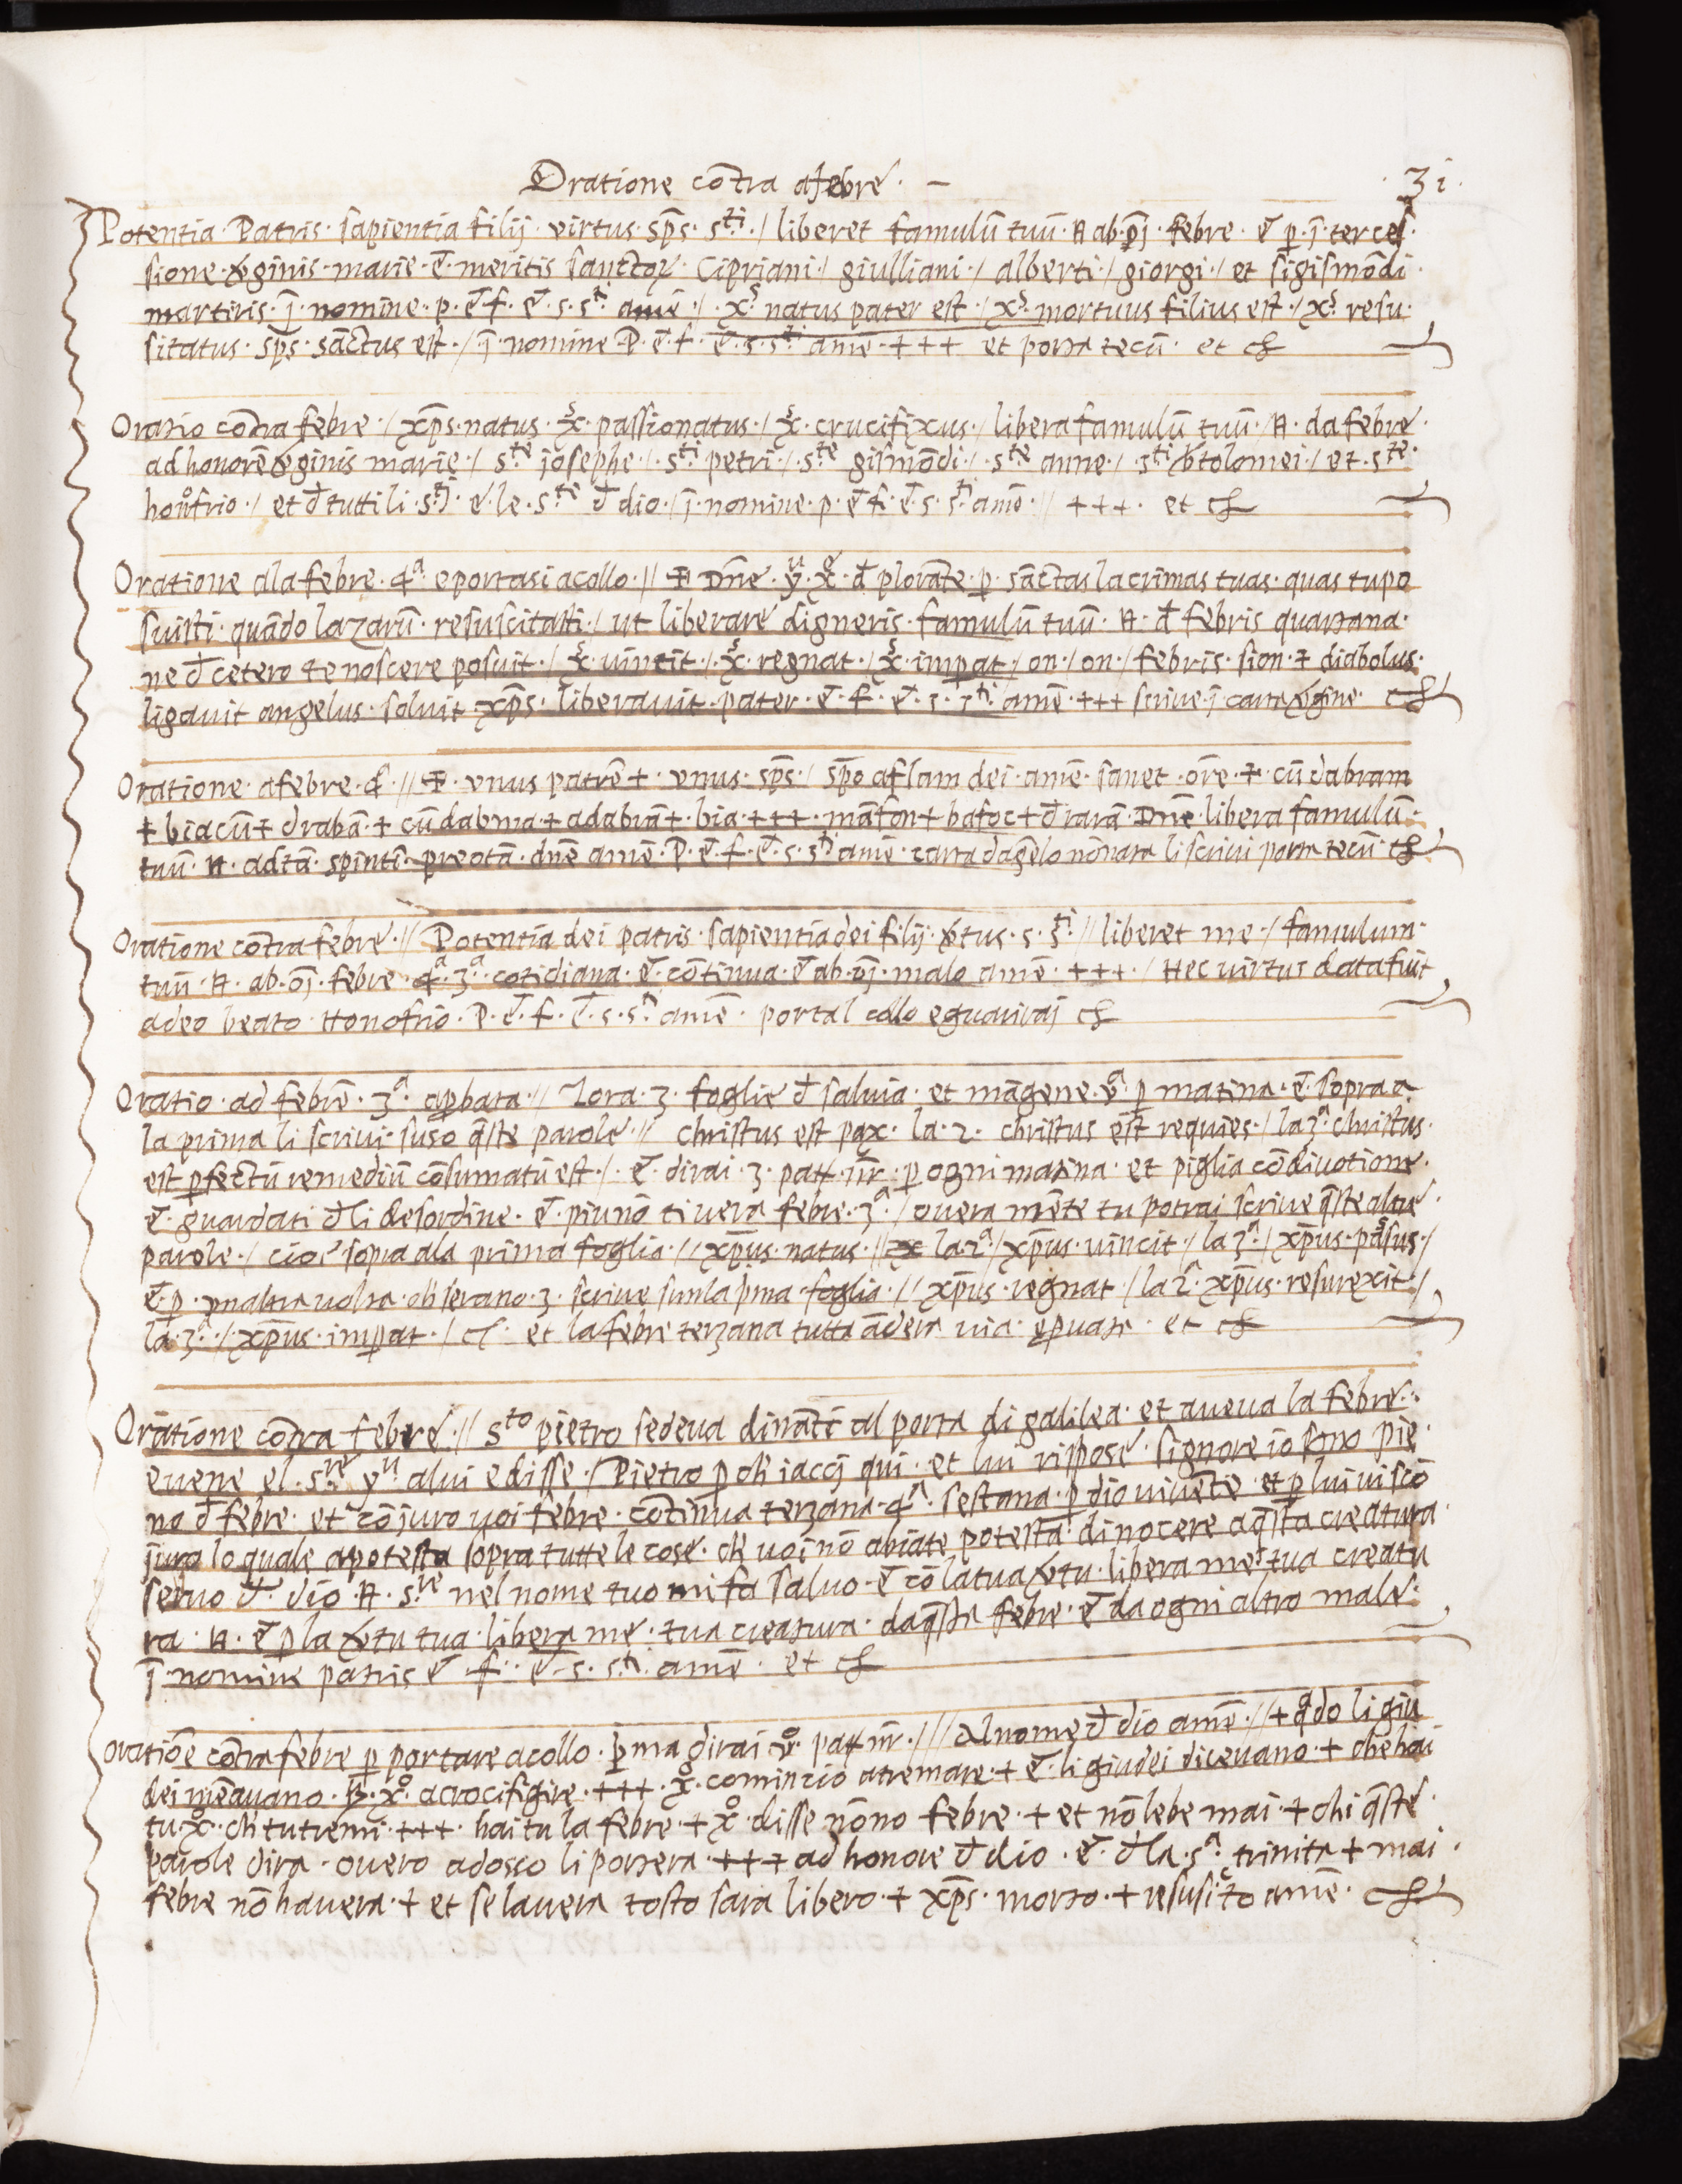 Oratione cõtra afebre · –
· 3i ·
Potentia · Patris · sapientia filij · virtus · sp̄s · s.ti · / liberet famulũ tuũ · N ab · õj · febre · ē p̱ · ĩ · terces
sione · v̵ginis · marie · ē · meritis sanctoꝝ · Cipriani · / giulliani · / alberti · / giorgi · / et sigismõdi ·
martiris · ĩ · nomine · p · ē · f · ē · s · s.ti amē · / · xs̄ natus pater est · / xs̄ mortuus filius est · / xs̄ resu ·
sitatus · sp̄s · sãctus est · / ĩ · nomine · P · ē · f · ē · s · s.ti amē · + + + et porta tecũ · et
Oratio cõtra febre · / xp̄s · natus · xs̄ · passionatus · / xs̄ · crucifixus · / libera famulũ tuũ · N · da febre ·
ad honorē v̵ginis marie · / s.te josephe · / · s.ti petri · / · s.te gismõdi · / · s.te anne · / · s.ti btolomei · / et · s.te ·
honofrio · / et đ tutti li · s.ti · e · le · s.te đ dio · / ĩ · nomine · p · ē · f · ē · s · s.ti amē · // + + + · et
Oratione ala febre · 4a · e portasi acollo · // + Dñe · yu · xe · đ plorãte · p̱ · sãctas lacrimas tuas · quas tu po
suisti · quãdo lazarũ · resuscitasti · / ut liberare digneris · famulũ tuũ · N · đ febris quartana ·
ne đ cetero te noscere posuit · / xs̄ · uincit · / · xs̄ · regnat · / xs̄ · imp̱at · / on · / on · / febris · sion · + diabolus ·
ligavit angelus · soluit xp̄s · liberauit · pater · ē · f · ē · s · s.ti amē · + + + scriue · ĩ carta v̵gine ·
Oratione · afebre · 4 · // + · vnus patrē + · vnus · sp̄s · / sp̄o aflam dei · amē · sanet · õre · + · cũ dabram
+ biacũ + drabã · + cũ dabma + adabrã + · bia · + + + · mãfon + bafoc + đ rarã · Dñe · libera famulũ ·
tuũ · N · adtã · spiritĩ · preotã · dñe amē · P · ē · f · ē · s · s.ti amē · carta dãgelo nõnata li scriui porta tecũ ·
Oratione cõtra febre · // Potentia dei patris · sapientia dei filij · v̵tus · s · s.ti · // liberet me · / famulum ·
tuũ · N · ab · õj · febre · 4a · 3a · cotidiana · ē · cõtinua · ē ab · õj · malo amē · + + + · / Hec uirtus data fuit
adeo beato Honofrio · P · ē · f · ē · s · s.ti amē · portal collo e guarirai
Oratio · ad febrē · 3a · ap̱bata · // Tora · 3 · foglie đ saluia · et mãgene · va · p̱ matina · ē · sopra a
la prima li scriui · suso q̃ste parole · // christus est pax · la · 2 · christus est requies · / la 3a · christus ·
est p̱fectũ remediũ cõsumatũ est · / · ē · dirai · 3 · patr nr̃ · p̱ ogni matina · et piglia cõ diuotione ·
ē · guardati đ li desordine · ē · piu nõ ti uera febre · 3a · / ouera mēte tu potrai scriue q̃ste altre
parole · / cioe sopra ala prima foglia · // xp̄us · natus · // la · 2a · / xp̄us · uincit · / la 3a · / xp̄us · pãsus · /
ē · p̱ · unaltra uolta · obserano · 3 · scriue sunla p̄ma · foglia · // xp̄us · regnat · / la 2a · xp̄us · resurexit · /
la · 3a · / xp̄us · imp̱at · / et la febre terzana tutta ãdera uia · e p̱uata · et
Oratione cõtra febere · // Sto pietro sedeua dinãti al porta di galilea · et aueua la febre ·
e uene el · s.re yu alui e disse · / Pietro p̱ ch iacej qui · et lui rispose · signore io sono pie
no đ febre · et cõjuro uoi febre · cõtinua terzana · 4a · sestana · p̱ dio uiuēte · et p̱ lui ui scõ
juro lo quale a potesta sopra tutte le cose · ch uoi nõ abiate potesta · di nocere a q̃sta creatura ·
seruo đ · dio · N · s.re nel nome tuo mi fa saluo · ē cõ la tua v̵tu · libera me · tua creatu
ra · N · ē p̱ la v̵tu tua · libera me · tua creatura · da q̃sta febre · ē da ogni altro male ·
ĩ nomine patris ē · f · ē · s · s.ti · amē · et
oratiõe cõtra febre p̱ portare acollo · p̄ma dirai vo · patr nr̃ · /// Al nome đ dio amē · // + q̃do li giu
dei menauano · xo · acrocifigire · + + + · xo · cominzio atremare · + ē · li giudei diceuano · + che hai
tu xo · ch tu tremi · + + + · hai tu la febre · + xo · disse nõno febre · + et nõ lebe mai · + chi q̃ste
parole dira · ouero adosso li portera · + + + ad honore đ dio · ē · đ la · s.a · trinita + mai ·
febre nõ hauera · + et se lauera tosto sara libero · + xp̄s · morto · + resusito amē ·